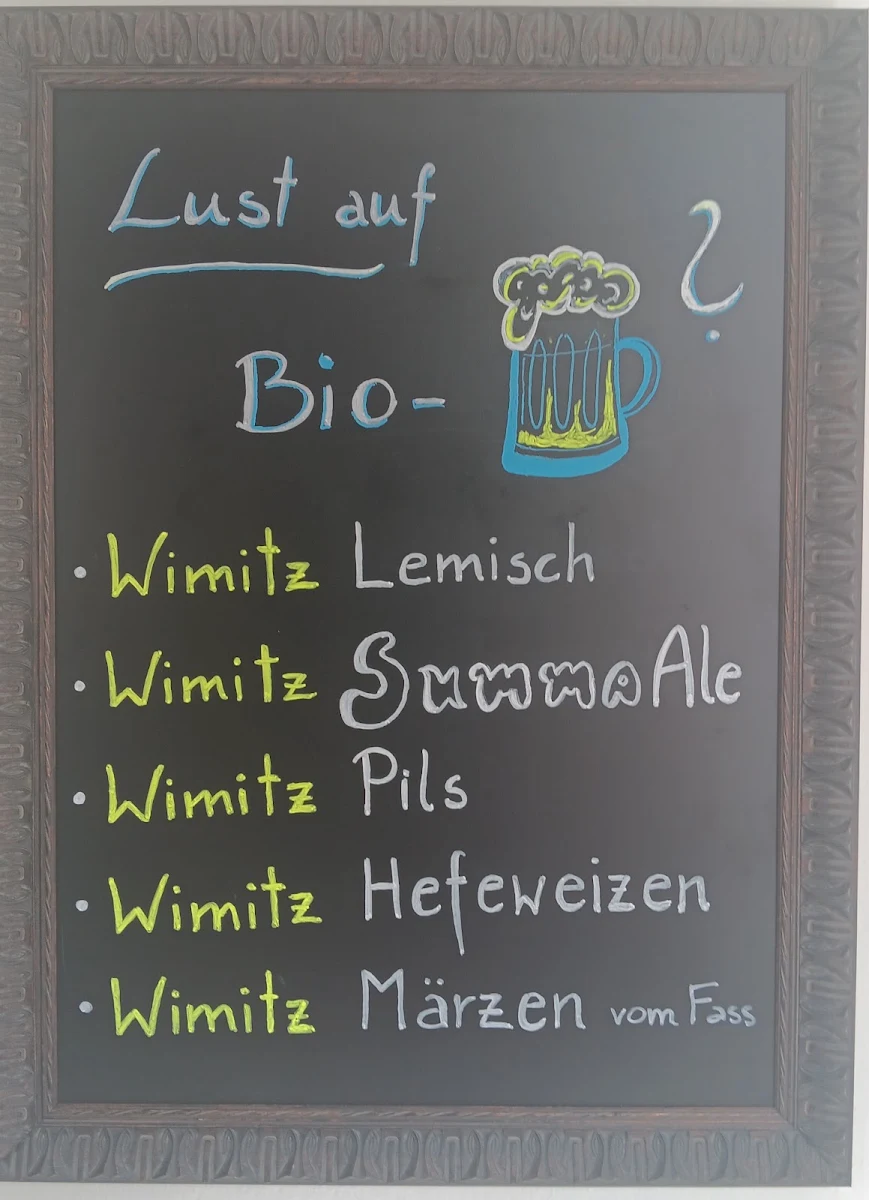 Lust auf
Bio- ?
• Wimitz Lemisch
• Wimitz Summa Ale
• Wimitz Pils
• Wimitz Hefeweizen
• Wimitz Märzen vom Fass